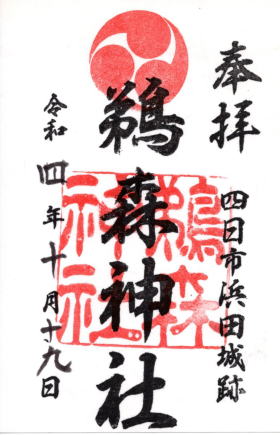 奉拝
四日市浜田城跡
鵜森神社
鵜森
神社
令和四年十月十九日